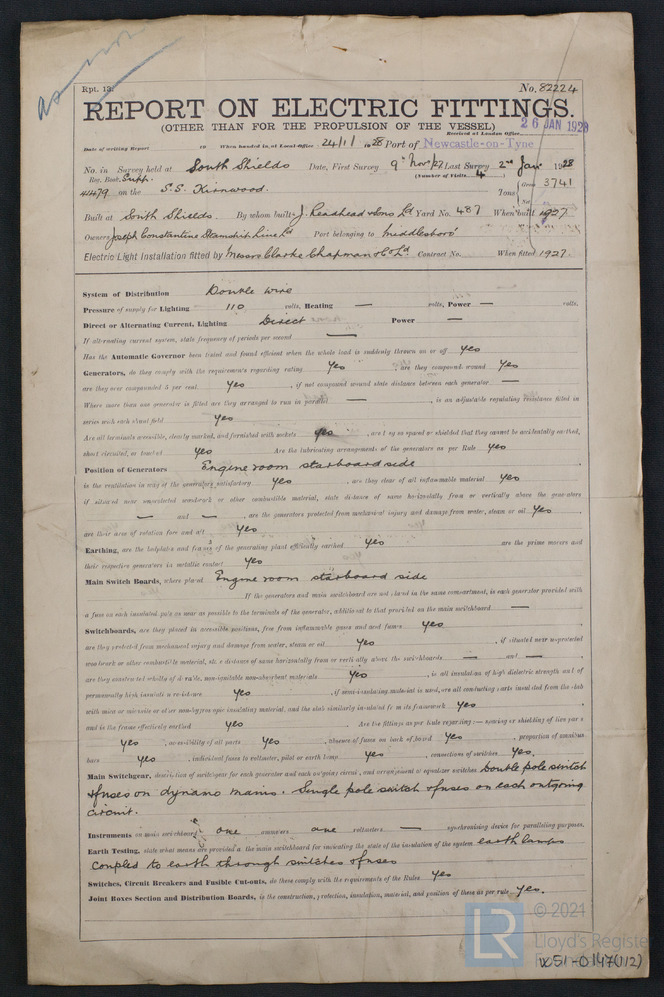 as now
Rpt. 13.
No. 82224
REPORT ON ELECTRIC FITTINGS.
(OTHER THAN FOR THE PROPULSION OF THE VESSEL)
Received at London Office 26 JAN 1928
Date of writing Report 19 When handed in at Local Office 24/1/1928 Port of Newcastle-on-Tyne
No. in Survey held at South Shields Date, First Survey 9th Nov/27 Last Survey 2nd Jan 1928
Reg. Book. Supp. (Number of Visits 4)
41479 on the S.S. Kirnwood. Tons Gross 3741
Net
Built at South Shields. By whom built J. Readhead & Sons Ld Yard No. 487 When built 1927
Owners Joseph Constantine Steamship Line Ld Port belonging to Middlesboro'
Electric Light Installation fitted by Messrs Clarke Chapman & Co Ld. Contract No. When fitted 1927.
System of Distribution Double wire
Pressure of supply for Lighting 110 volts, Heating — volts, Power — volts.
Direct or Alternating Current, Lighting Direct Power —
If alternating current system, state frequency of periods per second —
Has the Automatic Governor been tested and found efficient when the whole load is suddenly thrown on or off yes
Generators, do they comply with the requirements regarding rating yes, are they compound wound yes
are they over compounded 5 per cent yes, if not compound wound state distance between each generator —
Where more than one generator is fitted are they arranged to run in parallel —, is an adjustable regulating resistance fitted in
series with each shunt field yes
Are all terminals accessible, clearly marked, and furnished with sockets yes, are they so spaced or shielded that they cannot be accidentally earthed,
short circuited, or touched yes Are the lubricating arrangements of the generators as per Rule yes
Position of Generators Engine room starboard side
is the ventilation in way of the generators satisfactory yes, are they clear of all inflammable material yes
if situated near unprotected woodwork or other combustible material, state distance of same horizontally from or vertically above the generators
— and —, are the generators protected from mechanical injury and damage from water, steam or oil yes,
are their axes of rotation fore and aft yes
Earthing, are the bedplates and frames of the generating plant efficiently earthed yes are the prime movers and
their respective generators in metallic contact yes
Main Switch Boards, where placed Engine room starboard side
If the generators and main switchboard are not placed in the same compartment, is each generator provided with
a fuse on each insulated pole as near as possible to the terminals of the generator, additional to that provided on the main switchboard —
Switchboards, are they placed in accessible positions, free from inflammable gases and acid fumes yes,
are they protected from mechanical injury and damage from water, steam or oil yes, if situated near unprotected
woodwork or other combustible material, state distance of same horizontally from or vertically above the switchboards — and —,
are they constructed wholly of durable, non-ignitable non-absorbent materials yes, is all insulation of high dielectric strength and of
permanently high insulation resistance yes, if semi-insulating material is used, are all conducting parts insulated from the slab
with mica or micanite or other non-hygroscopic insulating material, and the slab similarly insulated from its framework yes,
and is the frame effectively earthed yes Are the fittings as per Rule regarding:— spacing or shielding of live parts
yes, accessibility of all parts yes, absence of fuses on back of board yes, proportion of omnibus
bars yes, individual fuses to voltmeter, pilot or earth lamp yes, connections of switches yes.
Main Switchgear, description of switchgear for each generator and each outgoing circuit, and arrangement of equalizer switches Double pole switch
& fuses on dynamo mains. Single pole switch & fuses on each outgoing
circuit.
Instruments on main switchboard one ammeters one voltmeters — synchronising device for paralleling purposes.
Earth Testing, state what means are provided at the main switchboard for indicating the state of the insulation of the system earth lamps
coupled to earth through switches & fuses
Switches, Circuit Breakers and Fusible Cut-outs, do these comply with the requirements of the Rules yes
Joint Boxes Section and Distribution Boards, is the construction, protection, insulation, material, and position of these as per rule yes.
LR
© 2021
Lloyd's Register
W51-0147(1/2)